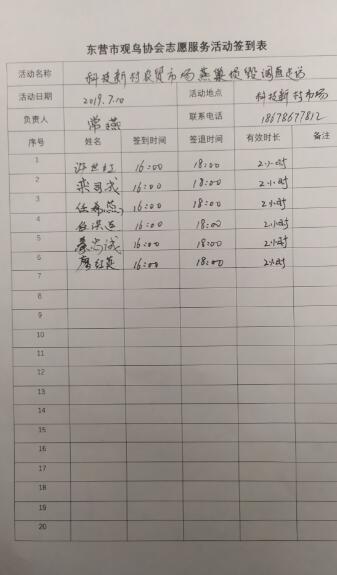 东营市观鸟协会志愿服务活动签到表
活动名称 科技新村农贸市场燕巢损毁调查走访
活动日期 2019.7.10 活动地点 科技新村市场
负责人 常燕 联系电话 18678677812
序号 姓名 签到时间 签退时间 有效时长 备注
1 16:00 18:00 2小时
2 16:00 18:00 2小时
3 16:00 18:00 2小时
4 16:00 18:00 2小时
5 16:00 18:00 2小时
6 16:00 18:00 2小时
7
8
9
10
11
12
13
14
15
16
17
18
19
20